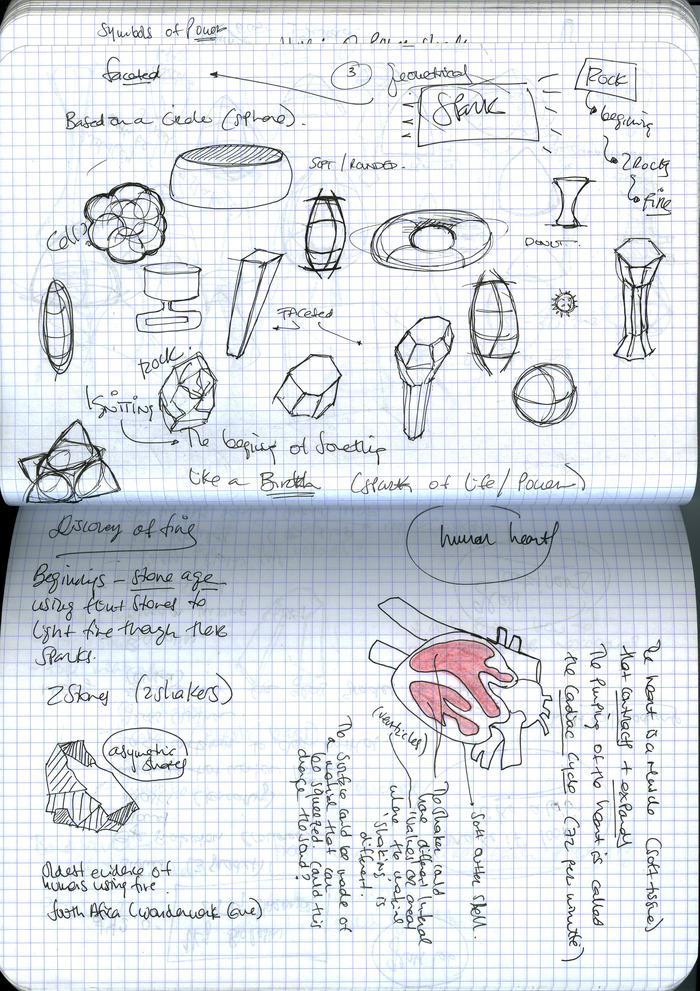 Symbols of Power
faceted
3
Geometrical
Spark
Rock
beginning
2 Rocks
fire
Based on a Circle (sphere).
SOFT / ROUNDED.
Cell?
DONUT.
FACETED
rock.
IGNITING
The begining of Something
like a Birth (spark of life / Power)
Discovery of fire
human heart
Beginings - stone age
using flint stones to
light fire though there
sparks.
2 Stones (2 shakers)
asymetric
shapes
oldest evidence of
humans using fire.
South Africa (Wonderwerk Cave)
The heart is a muscle (soft tissue)
that contracts + expands
The Pumping of the heart is called
the Cardiac Cycle (72 per minute)
(ventricles)
soft outer shell.
The shaker could
have different internal
valves or areas
where the material
'shaking' is
different.
The surface could be made of
a material that can
be squeezed. could this
change the sound?